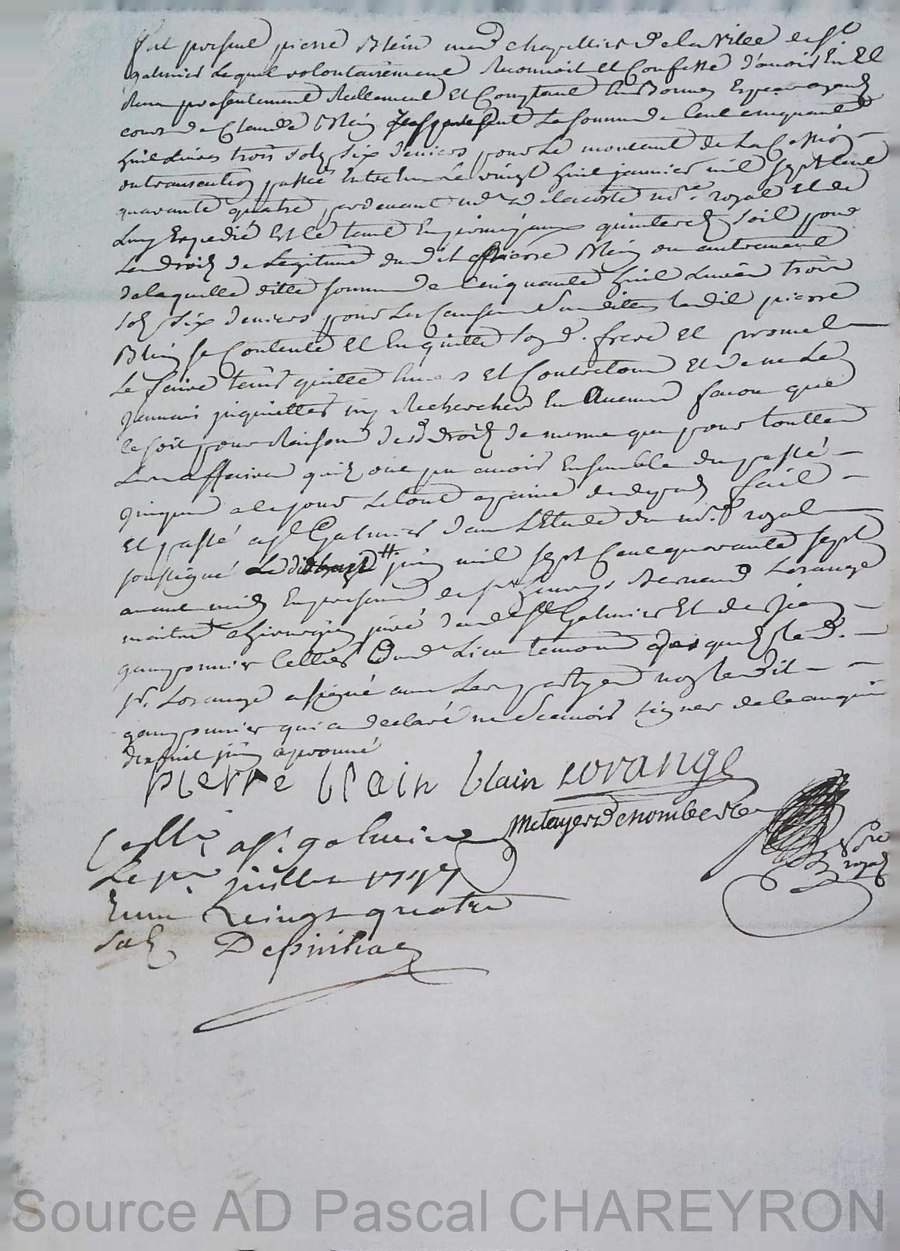 fut present pierre Blein md chapellier de la ville de st
galmier Lequel volontairement Reconnoit et Confesse d'avoir Eu et
Receu presentement Reellement et Comptant En Bonnes Especes ayant
cours de Claude Blein present La somme de Cent cinquante
huit Livres trois sols six deniers pour Le montant de La Cession
ou transaction passée Entre Eux Le vingt huit janvier mil sept Cent
quarante quatre par devant me Delacoste nre royal et de
Luy Expedié Et Le tout En principaux qu'interets soit pour
Les droits de Legitime dudit pierre Blein ou autrement
de laquelle ditte somme de Cinquante huit Livres trois
sols six deniers pour Les Causes Susdites Ledit pierre
Blein se Contente Et En quitte sond. frere Et promet
Le faire tenir quitte Envers Et Contre tous Et de ne Le
jamais inquietter ny Rechercher En Aucune facon que
ce soit pour Raison desd droits de meme que pour touttes
Les affaires qu'ils ont pu avoir Ensemble du passé
jusques a ce jour Le tout a peine de depens fait
Et passé a st Galmier dans L'Etude du nore royal
soussigné Le juin mil sept Cent quarante sept
avant midy En presence de sr Bernard Lorange
maitre chirurgien juré dud st Galmier Et de
gamponnier cellier dud Lieu temoins Lesquels led.
sr. Lorange a signé avec Les partyes non ledit
gamponnier qui a declaré ne Scavoir signer de ce enquis
dixhuit juin aprouvé
Pierre blain blain Lorange
nore
royal
Collé a st. galmier
Le pr juillet 1747
Receu vingt quatre
sols Depinhac
Source AD Pascal CHAREYRON